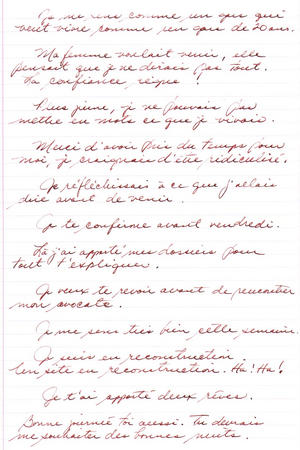 Je me sens comme un gars qui
veut vivre comme un gars de 20 ans.
Ma femme voulait venir, elle
pensait que je ne dirais pas tout.
La confiance règne !
Plus jeune, je ne pouvais pas
mettre en mots ce que je vivais.
Merci d'avoir pris du temps pour
moi, je craignais d'être ridiculisé.
Je réfléchissais à ce que j'allais
dire avant de venir.
Je te confirme avant vendredi.
Là j'ai apporté mes dossiers pour
tout t'expliquer.
Je veux te revoir avant de rencontrer
mon avocate.
Je me sens très bien cette semaine.
Je suis en reconstruction.
Un site en reconstruction. Ha! Ha!
Je t'ai apporté deux rêves.
Bonne journée toi aussi. Tu devrais
me souhaiter des bonnes nuits.